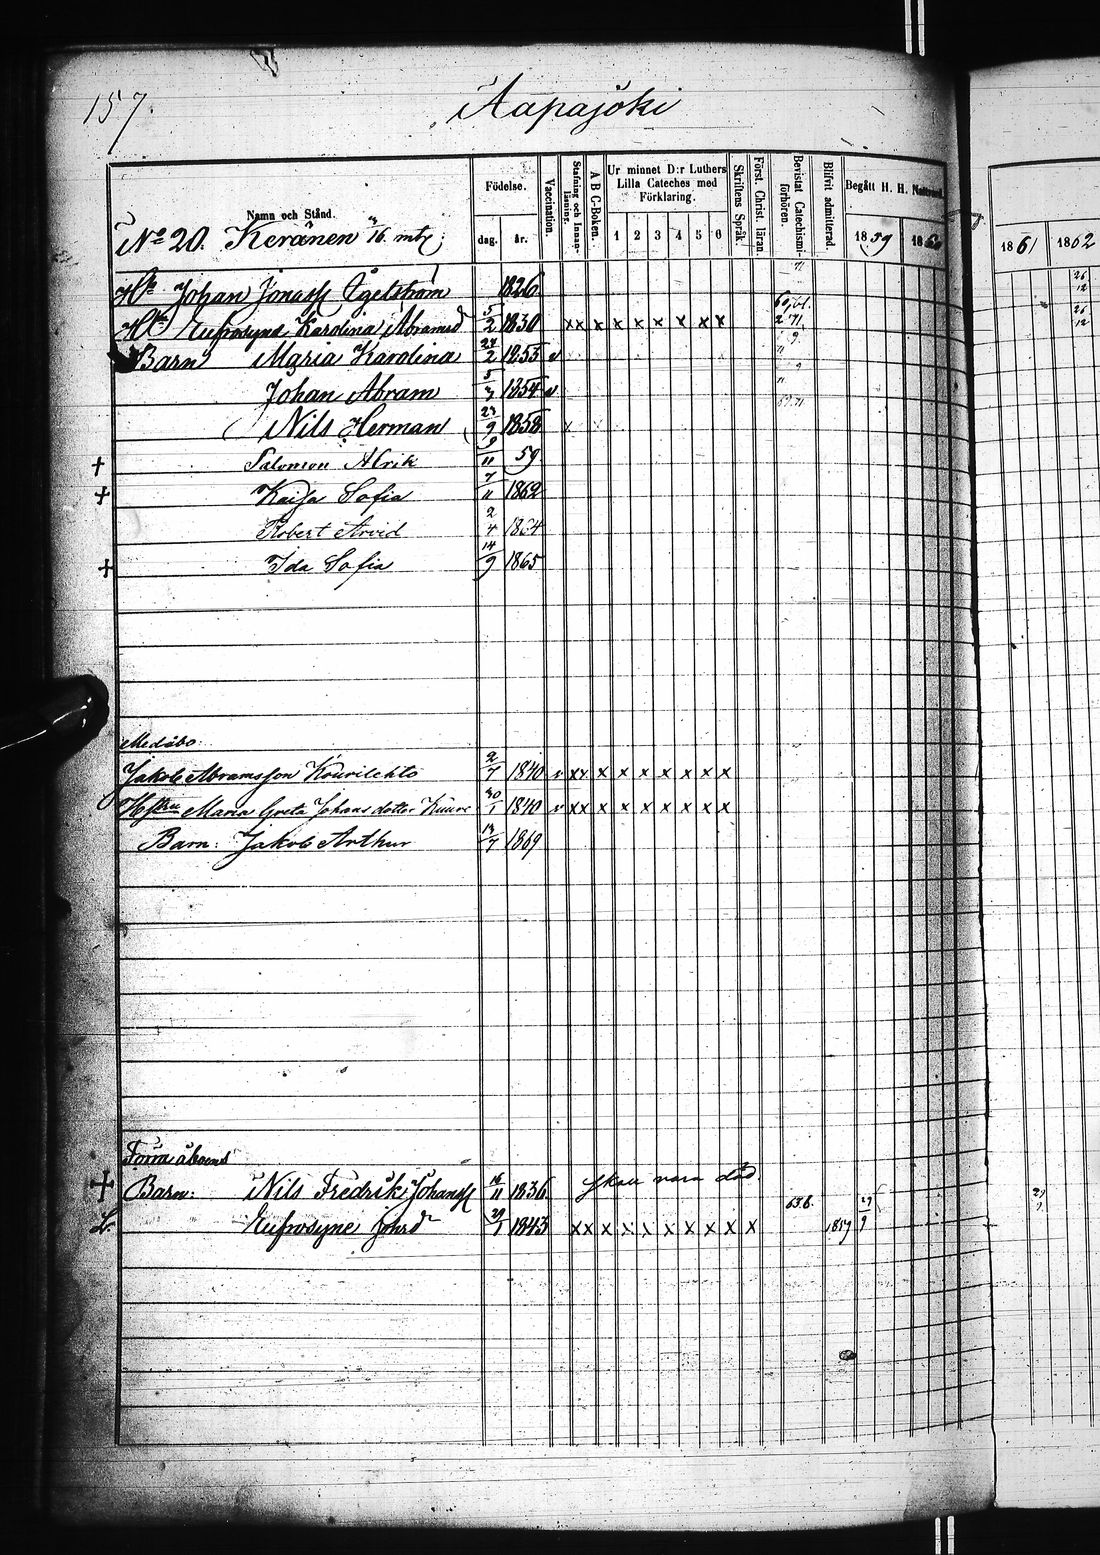 157.
Aapajoki
Namn och Stånd.
Födelse.
dag. år.
Vaccination.
Stafning och Innan-läsning.
A B C-Boken.
Ur minnet D:r Luthers Lilla Cateches med Förklaring.
1 2 3 4 5 6
Skriftens Språk.
Först. Christ. läran.
Bevistat Catechismi-förhören.
Blifvit admitterad.
Begått H. H. Nattvard
1859 1860 1861 1862
No 20. Keränen 3/16 mtl;
Johan Jonass Ögelström 1826
Eufrosyne Karolina Abramsd 5/2 1830 x x x x x x x x x
Barn Maria Karolina 27/2 1853 v
Johan Abram 5/3 1854 v
Nils Herman 23/9 1858
† Salomon Alrik 9/11 59
† Kaisa Sofia 7/11 1862
Robert Arvid 2/4 1864
† Ida Sofia 14/9 1865
Medåbo:
Jakob Abramsson Kourilehto 2/7 1840 v x x x x x x x x x
Hustru Maria Greta Johans dotter Kuure 30/1 1840 v x x x x x x x x x
Barn: Jakob Arthur 13/7 1869
Förra åboens
† Barn: Nils Fredrik Johanss 16/11 1836 skall vara död.
Eufrosyne Johsd 29/1 1843 x x x x x x x x x x 1859 27/9